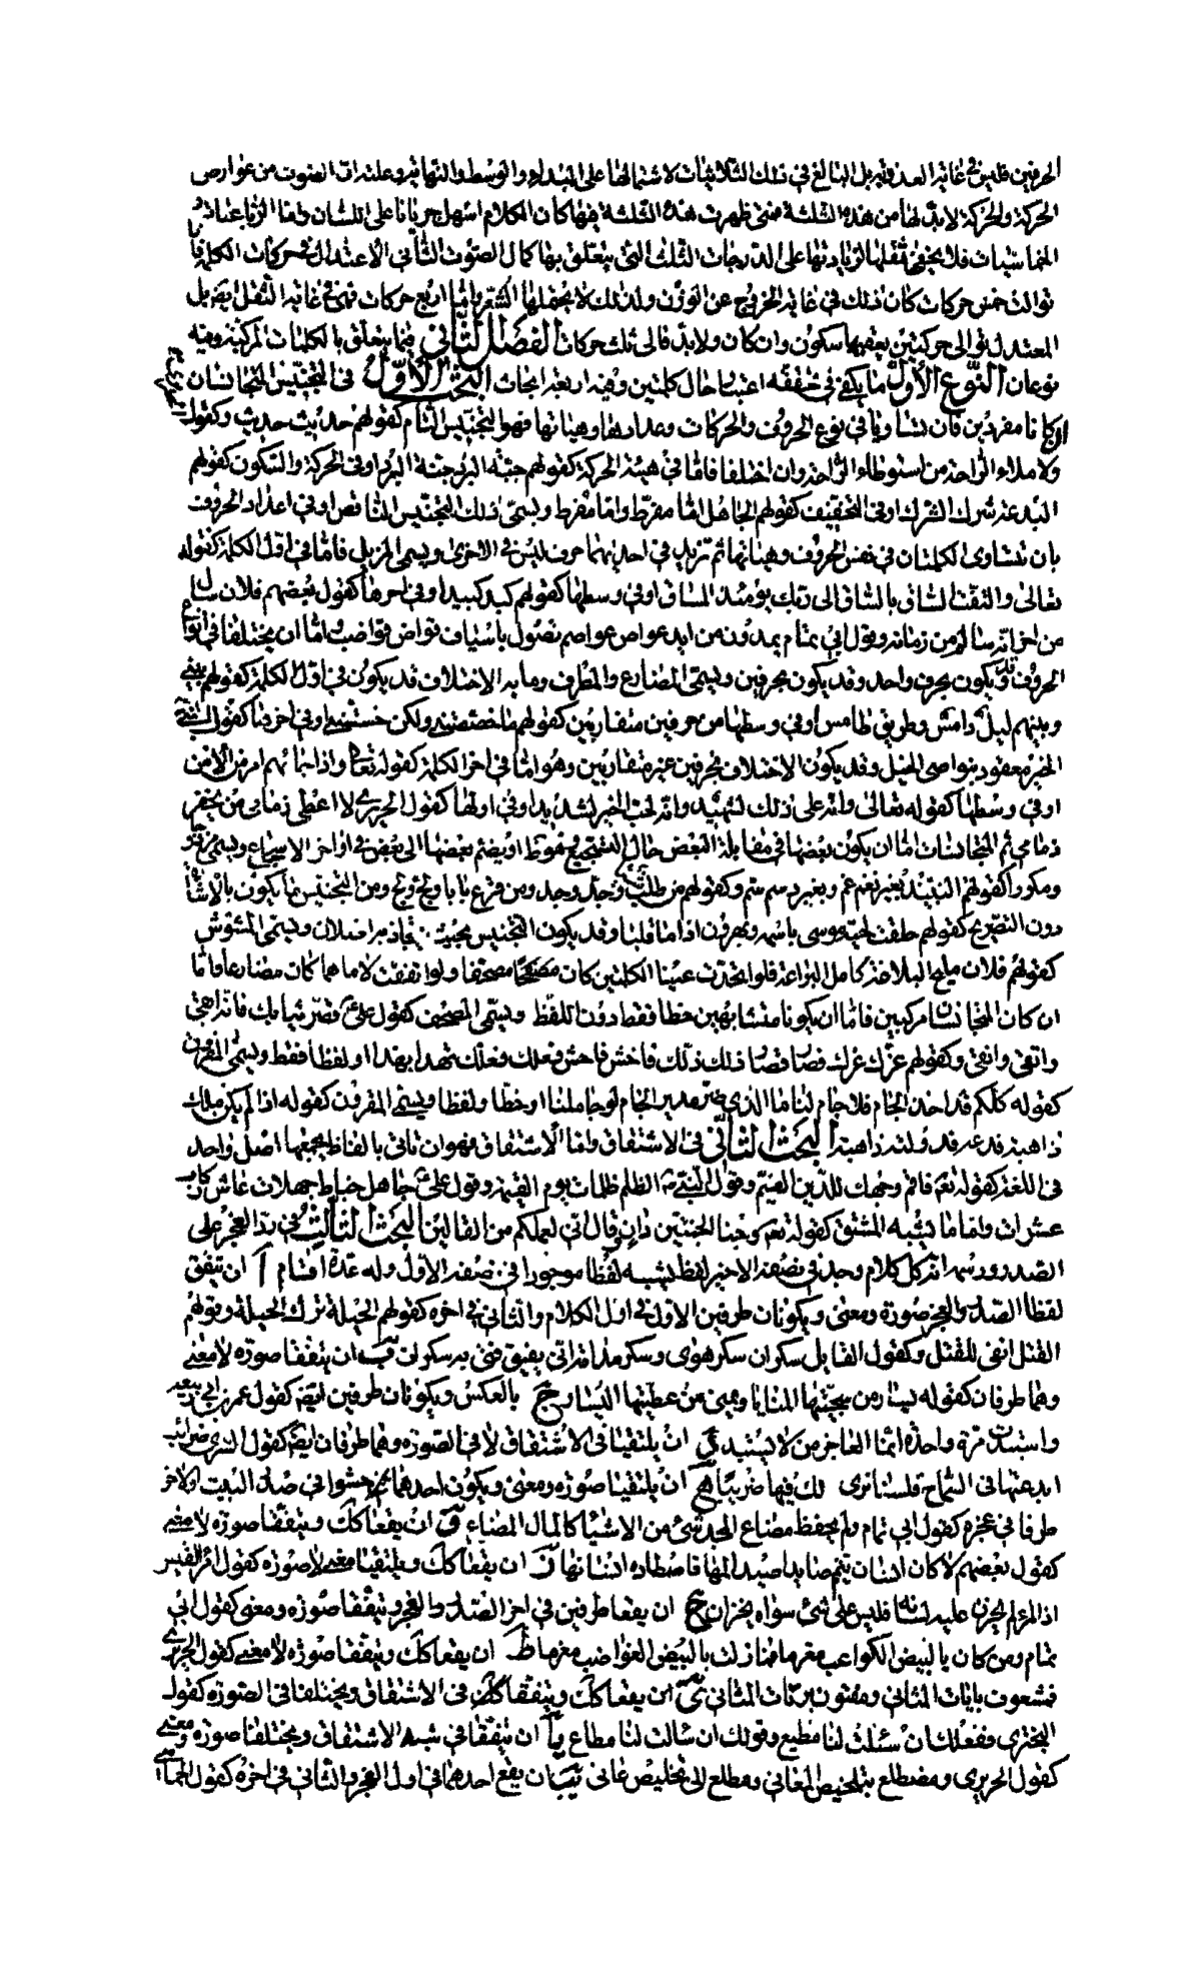 الحرفين فليس في غاية العذوبة بل البالغ في ذلك الثلاثيات لاشتمالها على المبداء والوسط والنهاية وعلته ان الصوت من عوارض
الحركة والحركة لا بد لها من هذه الثلثة فمتى ظهرت هذه الثلثة فيها كان الكلام اسهل جريانا على اللسان واما الرباعيات و
الخماسيات فلا يخفى ثقلها لزيادتها على الدرجات الثلث التى يتعلق بها كمال الصوت الثانى الاعتدال في حركات الكلمة فاذا
توالت خمس حركات كان ذلك في غاية الخروج عن الوزن ولذلك لا يحتملها الشعر واما اربع حركات فهى في غاية الثقل ايضه بل
المعتدل توالى حركتين يعقبهما سكون وان كان ولا بد فالى ثلث حركات الفصل الثانى فيما يتعلق بالكلمات المركبة وفيه
نوعان النوع الاول ما يكفى في تحققه اعتبار حال كلمتين وفيه اربعة ابحاث البحث الاول في التجنيس المتجانسان
ان كانا مفردين فان تساويا في نوع الحروف والحركات وعدادها وهيئاتها فهو التجنيس التام كقولهم حديث حديث وكقوله
ولا ملاء الراحة من استوطاء الراحة وان اختلفا فاما في هيئة الحركة كقولهم جبة البرد جنة البرد او في الحركة والسكون كقولهم
البدعة شرك الشرك او في التخفيف كقولهم الجاهل اما مفرط واما مفرط ويسمى ذلك التجنيس الناقص او في اعداد الحروف
بان تتساوى الكلمتان في نفس الحروف وهيئاتها ثم تزيد في احديهما حرف ليس في الاخرى ويسمى المزيل فاما في اول الكلمة كقوله
تعالى والتفت الساق بالساق الى ربك يومئذ المساق او في وسطها كقولهم كبد كبيد او في اخرها كقول بعضهم فلان سال
من احزانه سالم من زمانه وقول ابي تمام يمدون من ايد عواص عواصم تصول باسياف قواض قواضب واما ان يختلفا في انواع
الحروف وقد يكون بحرف واحد وقد يكون بحرفين ويسمى المضارع والمطرف وما به الاختلاف قد يكون في اول الكلمة كقولهم بينى
وبينهم ليل دامس وطريق طامس او في وسطها من حرفين متقاربين كقولهم ما خصصتنى ولكن خسستنى او في اخرها كقول النبى
الخير معقود بنواصى الخيل وقد يكون الاختلاف بحرفين غير متقاربين وهو اما في اخر الكلمة كقوله تعالى واذا جائهم امر من الامن
او في وسطها كقوله تعالى وانه على ذلك لشهيد وانه لحب الخير لشديد او في اولها كقول الحريرى لا اعطى زمامى من يخفر
ذمامى ثم المتجانسات اما ان يكون بعضها في مقابلة البعض حال التسجيع او يضم بعضها الى بعض في اواخر الاسجاع ويسمى مزدوجا
ومكررا كقولهم النبيذ بغير نغم غم وبغير دسم سم وكقولهم من طلب وجد وجد ومن قرع بابا ولج ولج ومن التجنيس ما يكون بالاشارة
دون التصريح كقولهم حلقت لحية موسى باسمه وبهرون اذا ما قلبا وقد يكون التجنيس ويسمى المشوش
كقولهم فلان مليح البلاغة كامل البراعة فلو اتحدت عينا الكلمتين كان مصحفا ولو اتفقت لاماهما كان مضارعا واما
ان كان المتجانسان مركبين فاما ان يكونا متشابهين خطا فقط دون اللفظ ويسمى المصحف كقول على ع قصر ثيابك فانه ابقى
واتقى وانقى وكقولهم غرك عزك فصار قصار ذلك ذلك فاخش فاحش فعلك فعلك تهدا بهذا او لفظا فقط ويسمى المفروق
كقوله كلكم قد اخذ الجام فلا جام لنا ما الذى ضر مدير الجام لو جاملنا او خطا ولفظا ويسمى المقرون كقوله اذا لم يكن ملك
ذا هبة فدعه فدولته ذاهبة البحث الثانى في الاشتقاق واما الاشتقاق فهو ان تاتى بالفاظ يجمعها اصل واحد
في اللغة كقوله تعه فاقم وجهك للدين القيم وقول النبى ص الظلم ظلمات يوم القيمة وقول على ع جاهل خباط جهلات عاش ركاب
عشوات واما ما يشبه المشتق كقوله تعه وجنا الجنتين دان وقال انى لعملكم من القالين البحث الثالث في رد العجز على
الصدر ورسمه انه كل كلام وجد في نصفه الاخير لفظ يشبه لفظا موجودا في نصفه الاول وله عدة اقسام ا ان يتفق
لفظا الصدر والعجز صورة ومعنى ويكونان طرفين الاول في اول الكلام والثانى في اخره كقولهم الحيلة ترك الحيلة وقولهم
القتل انفى للقتل وكقول القايل سكران سكر هوى وسكر مدامة انى يفيق فتى به سكران ب ان يتفقا صورة لا معنى
وهما طرفان كقوله يسار من سجيتها المنايا ويمنى من عطيتها اليسار ج بالعكس ويكونان طرفين ايضه كقول عمر بن ابى ربيعة
واستبدت مرة واحدة انما العاجز من لا يستبد د ان يلتقيا في الاشتقاق لا في الصورة وهما طرفان ايضه كقول السرى ضرائب
ابدعتها في السماح فلسنا نرى لك فيها ضريبا ه ان يلتقيا صورة ومعنى ويكون احدهما حشوا في صدر البيت والاخر
طرفا في عجزه كقول ابى تمام ولم يحفظ مضاع المجد شئ من الاشياء كالمال المضاع و ان يقعا كك ويتفقا صورة لا معنى
كقول بعضهم لا كان انسان تيمم صايدا صيد المها فاصطاده انسانها ز ان يقعا كك ويلتقيا معنى لا صورة كقول امرء القيس
اذا المرء لم يخزن عليه لسانه فليس على شئ سواه بخزان ح ان يقعا طرفين في اخر الصدر والعجز ويتفقا صورة ومعنى كقول ابى
تمام ومن كان بالبيض الكواعب مغرما فما زلت بالبيض القواضب مغرما ط ان يقعا كك ويتفقا صورة لا معنى كقول الحريرى
فمشعوف بايات المثانى ومفتون برنات المثانى ى ان يقعا كك ويتفقا في الاشتقاق ويختلفا في الصورة كقول
البحترى ففعلك ان سئلت لنا مطيع وقولك ان سالت لنا مطاع يا ان يتفقا في شبه الاشتقاق ويختلفا صورة ومعنى
كقول الحريرى ومضطلع بتلخيص المعانى ومطلع الى تخليص عانى يب ان يقع احدهما في اول العجز والثانى في اخره كقول الحماسى